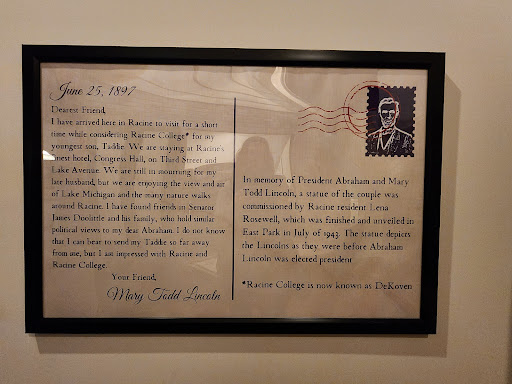 June 25, 1897
Dearest Friend,
I have arrived here in Racine to visit for a short
time while considering Racine College* for my
youngest son, Taddie. We are staying at Racine's
finest hotel, Congress Hall, on Third Street and
Lake Avenue. We are still in mourning for my
late husband, but we are enjoying the view and air
of Lake Michigan and the many nature walks
around Racine. I have found friends in Senator
James Doolittle and his family, who hold similar
political views to my dear Abraham. I do not know
that I can bear to send my Taddie so far away
from me, but I am impressed with Racine and
Racine College.
Your Friend,
Mary Todd Lincoln
In memory of President Abraham and Mary
Todd Lincoln, a statue of the couple was
commissioned by Racine resident Lena
Rosewell, which was finished and unveiled in
East Park in July of 1943. The statue depicts
the Lincolns as they were before Abraham
Lincoln was elected president
*Racine College is now known as DeKoven